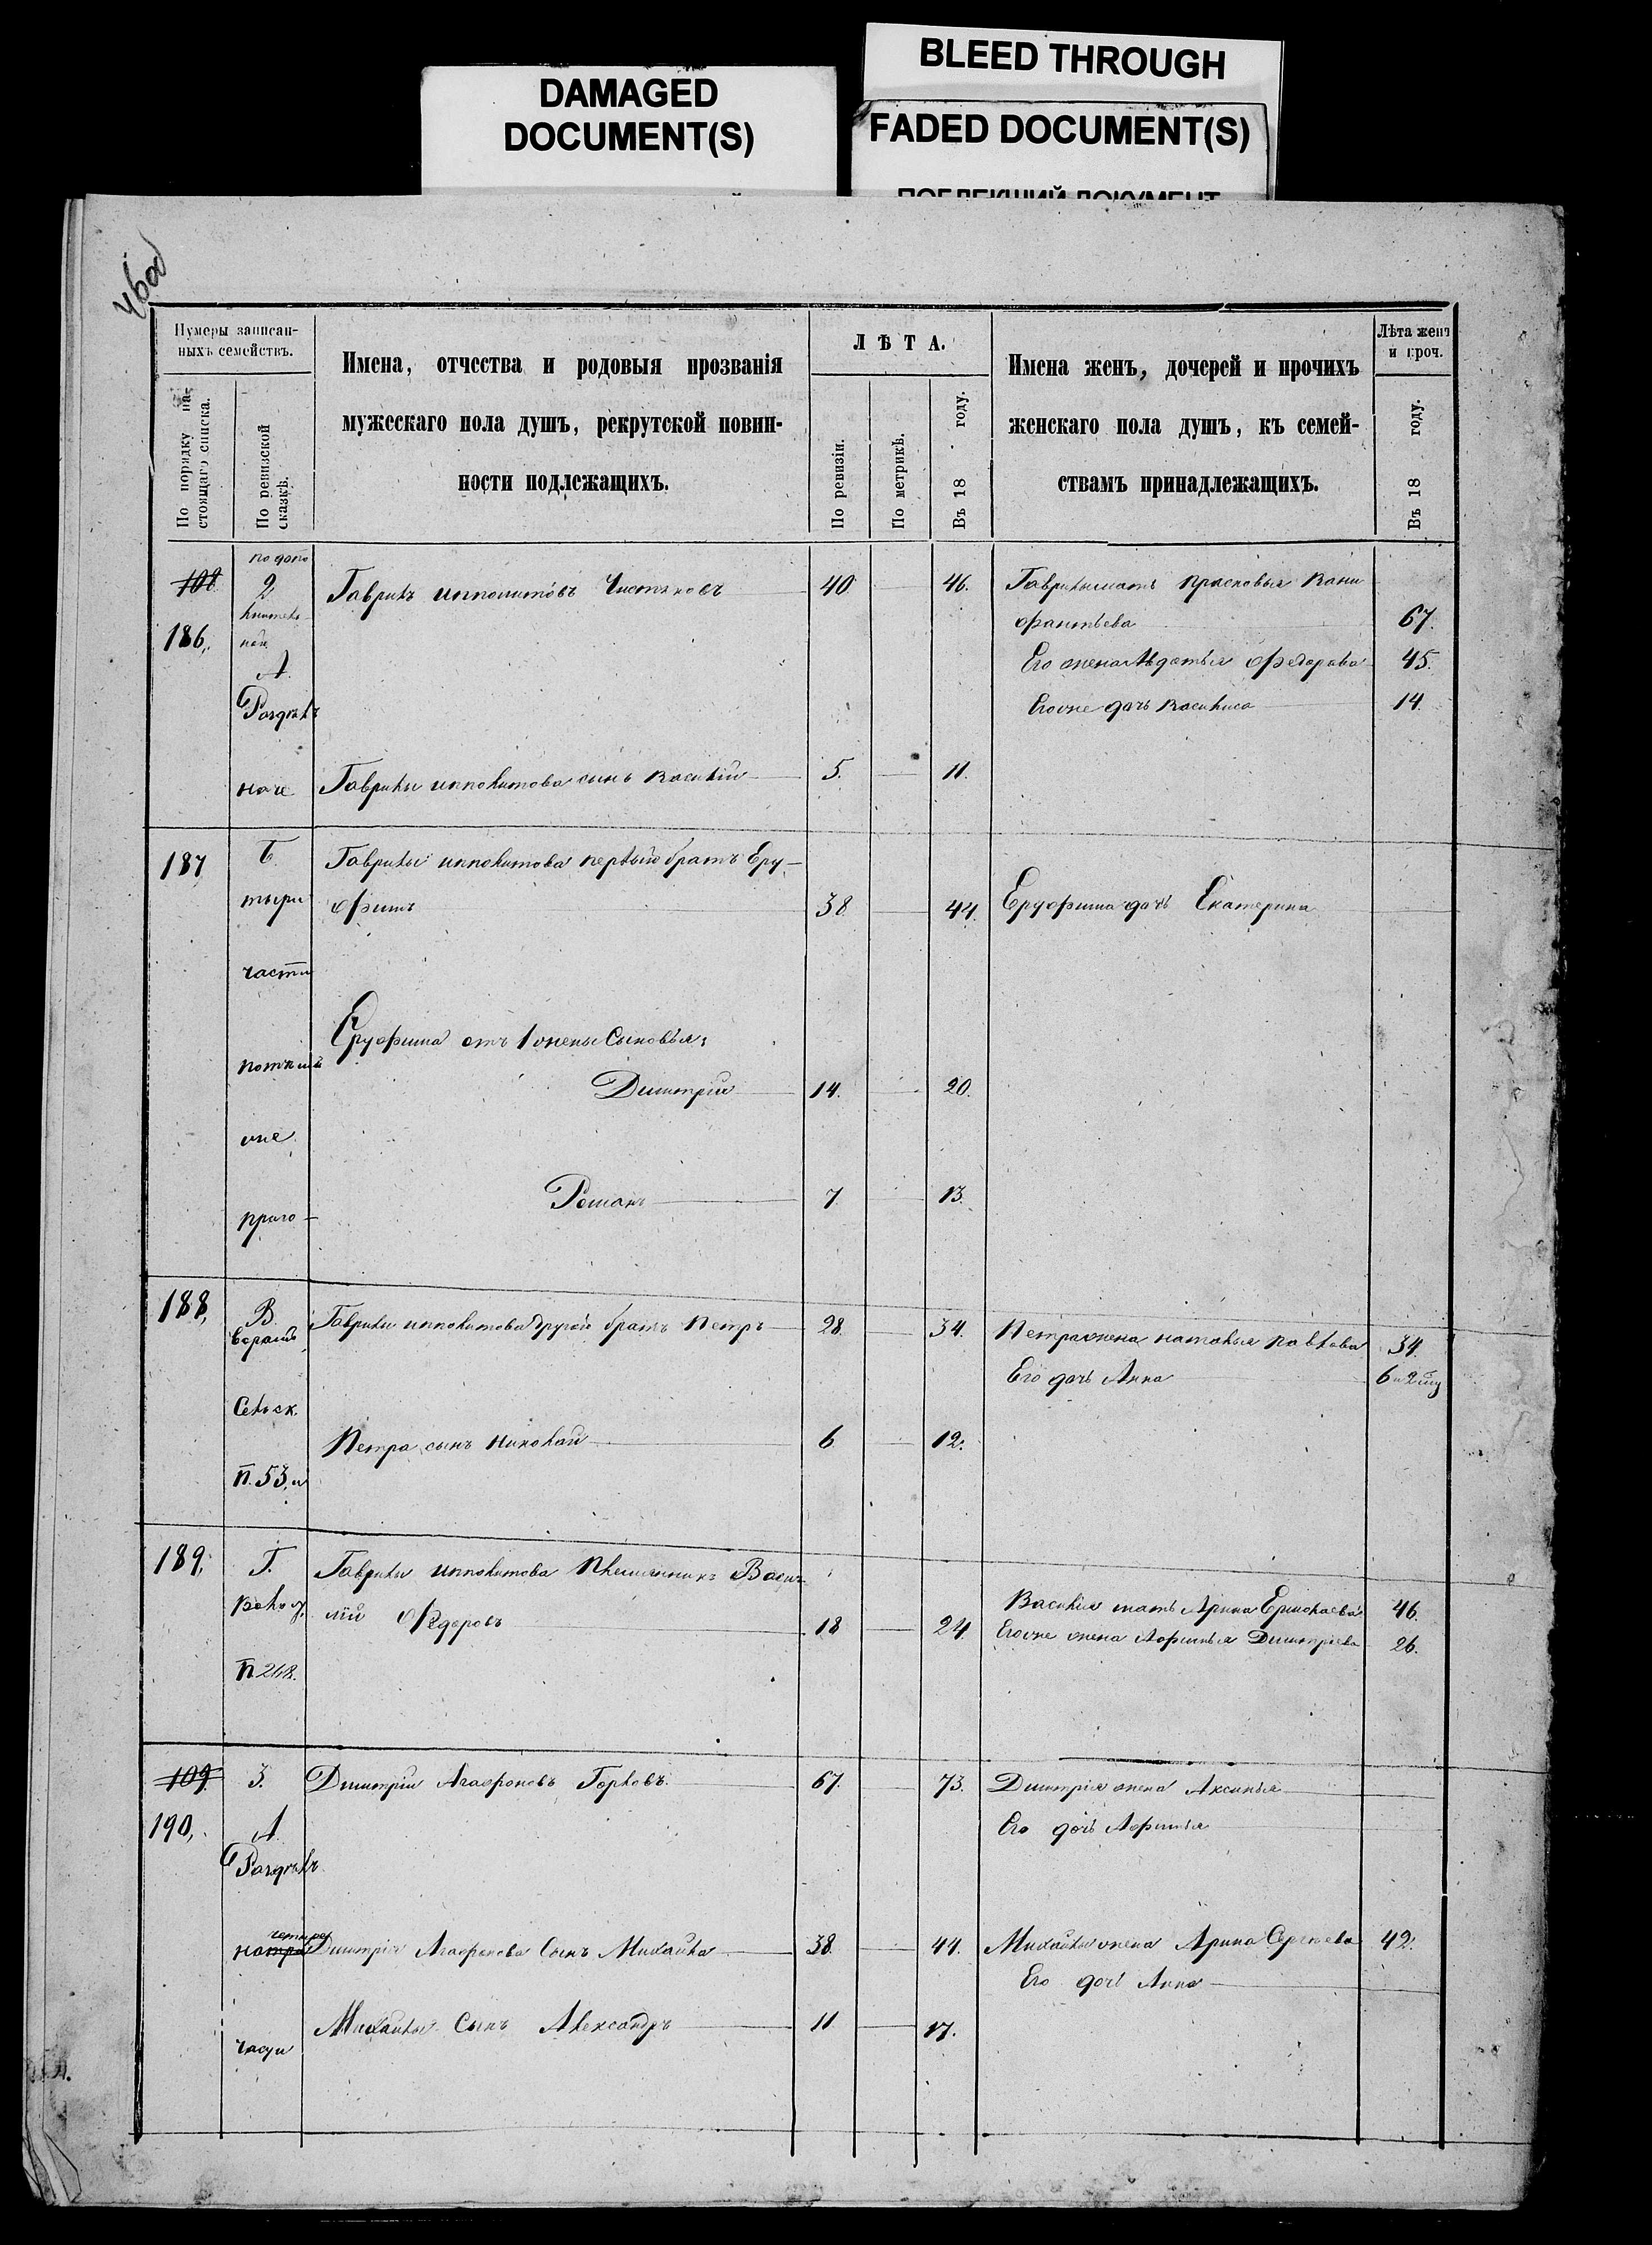 BLEED THROUGH
DAMAGED
DOCUMENT(S)
FADED DOCUMENT(S)
Нумеры записан-
ныхъ семействъ.
По порядку на-
стоящаго списка.
По ревизской
сказкѣ.
Имена, отчества и родовыя прозванія
мужескаго пола душъ, рекрутской повин-
ности подлежащихъ.
ЛѢТА.
По ревизіи.
По метрикѣ.
Въ 18 году.
Имена женъ, дочерей и прочихъ
женскаго пола душъ, къ семей-
ствамъ принадлежащихъ.
Лѣта женъ
и проч.
Въ 18 году.
108 2 Гаврилъ ипполитовъ Чистяковъ 40 46.
186, А.
Раздѣлъ
Гаврилы мать прасковья
67.
Его жена Авдотья Федорова 45.
Егоже дочь василиса 14.
наче Гаврилы ипполитова сынъ василій 5. 11.
187 Б. Гаврилы ипполитова первый братъ Еру-
тыри фимъ 38. 44. Еруфима дочь Екатерина
части
Еруфима отъ 1 жены Сыновья:
Димитрій 14. 20.
оне
Романъ 7. 13.
приго-
188, В. Гаврилы ипполитова другой братъ петръ 28. 34. Петра жена наталья павлова 34.
Его дочь Анна
Сельск.
Петра сынъ николай 6 12.
п. 53, и
189, Г. Гаврилы ипполитова племянникъ Васи-
лій Федоровъ 18 24. Василія мать Арина Ермолаева 46.
Егоже жена Афимья Димитріева 26.
п. 268.
109 3. Димитрій Агафоновъ Горловъ. 67. 73. Димитрія жена Аксинья
190, А. Его дочь Афимья
Раздѣлъ
четыре
натри Димитрія Агафонова Сынъ Михайла 38. 44. Михайлы жена Арина Сергѣева 42.
Его дочь Анна
Михайлы Сынъ Александръ 11 17.
части